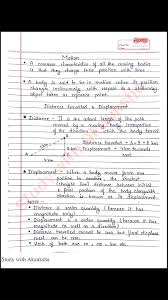 Motion
• A common characteristic of all the moving bodies
is that they change their position with time.
• A body is said to be in motion when its position
change continuously with respect to a stationary
object taken as reference point.
Distance travelled & Displacement
• Distance - It is the actual length of the path
covered by a moving body irrespective
of the direction in which the body travels
Displacement - When a body moves from one
position to another, the shortest
(straight line) distance between initial
& final position of the body alongwith
direction is known as its displacement.
Note :
• Distance is a scalar quantity (because it has
magnitude only)
• Displacement is a vector quantity (because it has
magnitude as well as a direction)
• Distance travelled cannot be zero but final displace
ment can be zero.
• Unit of both are
Study with Akanksha